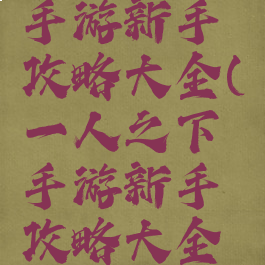 手游新手
攻略大全(
一人之下
手游新手
攻略大全